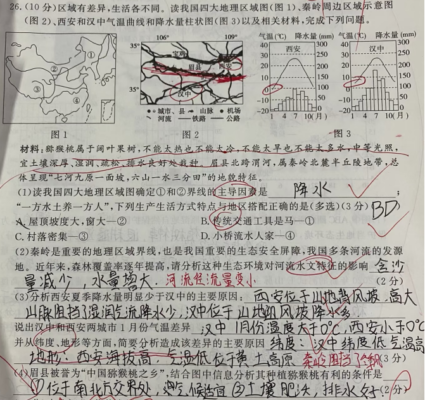 26.(10分)区域有差异,生活各不同。读我国四大地理区域图(图1)、秦岭周边区域示意图
(图2)、西安和汉中气温曲线和降水量柱状图(图3)以及相关材料,完成下列问题。
106° 109°
35°
气温(℃) 降水量(mm) 气温(℃) 降水量(mm)
西安 汉中
宝鸡
眉县
汉中
① ② ③ ④
1 4 7 10(月) 1 4 7 10(月)
城市、县 山脉 机场
河流 铁路 公路
图1 图2 图3
材料:猕猴桃属于阔叶果树,不能太热也不能太冷,不能太旱也不能太多水,中等光照,
宜土壤深厚、湿润、疏松、排水良好处栽种。眉县北跨渭河,属秦岭北麓半丘陵地带,总
体呈现"七河九原一面坡,六山一水三分田"的地貌特征。
(1)读我国四大地理区域图确定①和②界线的主导因素是 降水 ;
"一方水土养一方人",下列生产生活方式特点与地区搭配正确的是(多选)(3分) BD
A.屋顶坡度大,窗大—② B.传统交通工具是马—①
C.村落密集—③ D.小桥流水人家—④
(2)秦岭是重要的地理区域界线,也是我国重要的生态安全屏障,我国多条河流的发源
地。近年来,森林覆盖率逐年提高,请分析这种生态环境对河流水文特征的影响 含沙
量减少, 水量增大, 河流径流量变小 (2分)
(3)分析西安夏季降水量明显少于汉中的主要原因: 西安位于山地背风坡,高大
山脉阻挡湿润气流降水少,汉中位于山地迎风坡降水多
说出汉中和西安两城市1月份气温差异 汉中1月份温度大于0℃,西安小于0℃
并从纬度、地形等方面,简要分析造成该差异的主要原因 纬度:汉中纬度低气温高
地形:西安海拔高,气温低位于黄土高原 (3分)
(4)眉县被誉为"中国猕猴桃之乡",结合图中信息分析其种植猕猴桃有利的条件是
①位于南北方交界处, 气候适宜 ③土壤肥沃, 排水好 (2分)